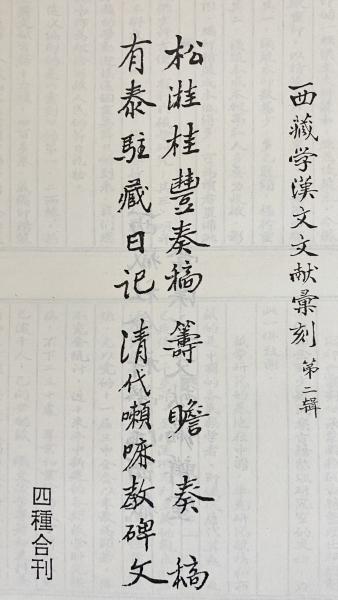 西藏学漢文文献彙刻 第二辑
松溎桂豐奏稿 籌瞻奏稿
有泰駐藏日记 清代喇嘛教碑文
四種合刊